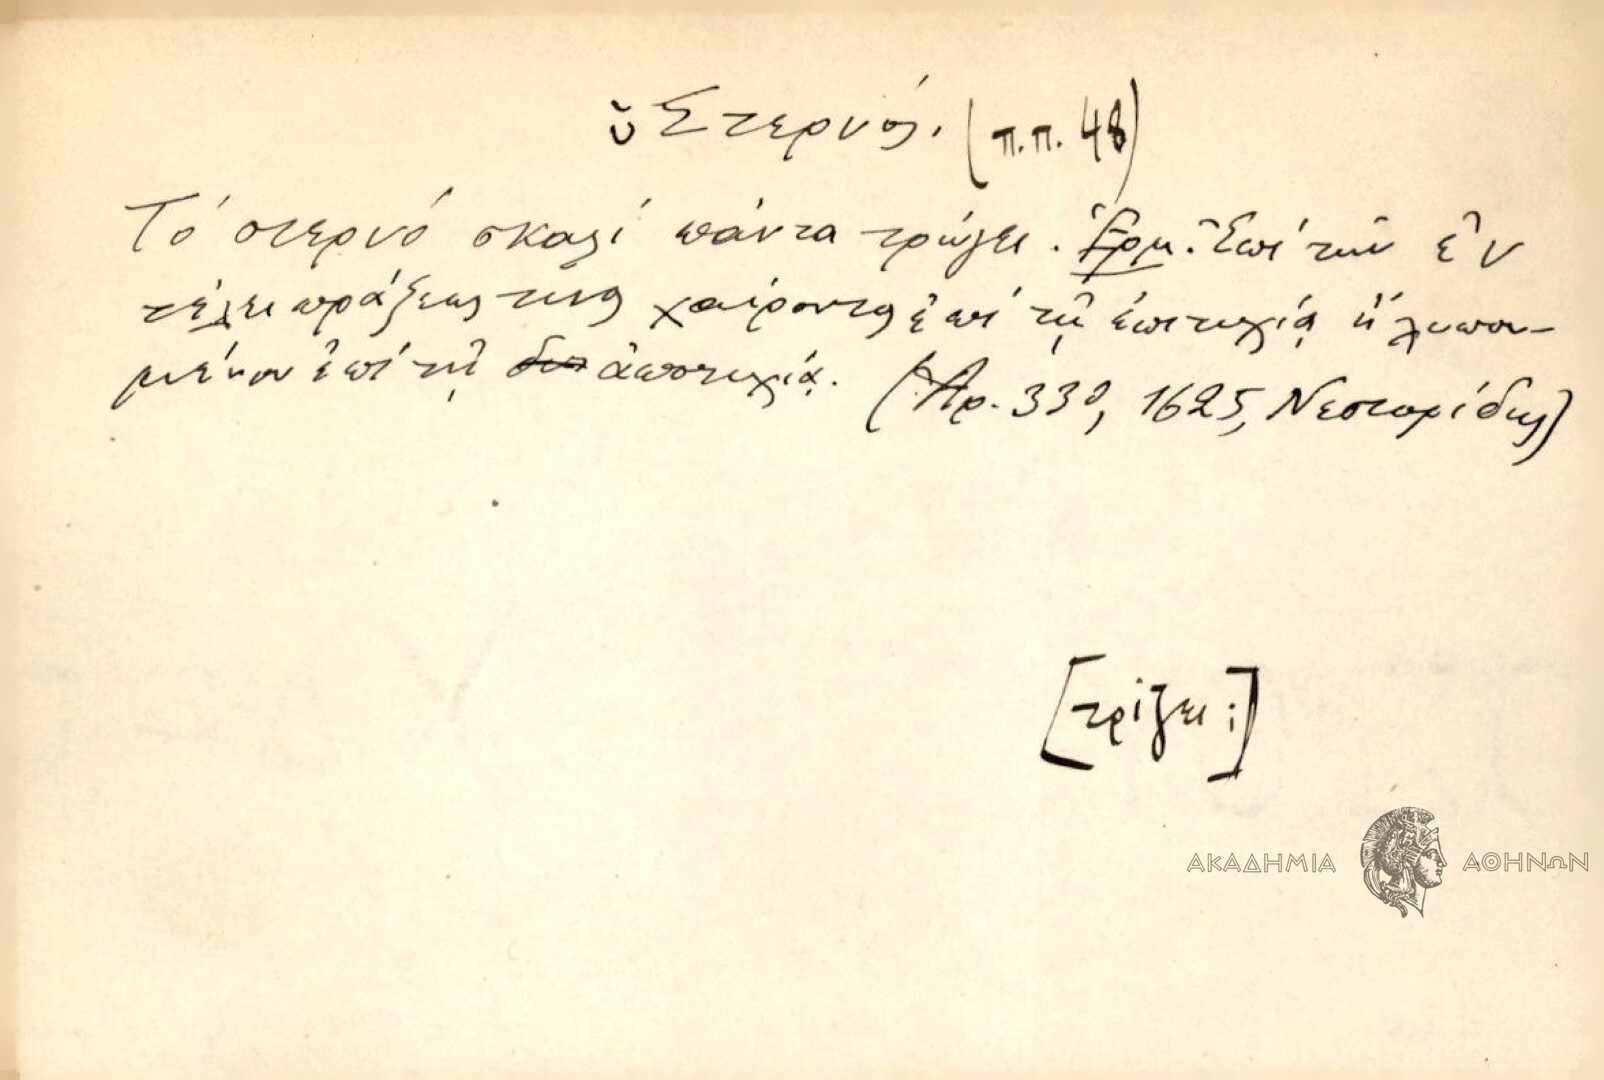 ὕΣτερνός. (π.π. 48)
Τό στερνό σκαλί πάντα τρώγει. Ἑρμ. Ἐπί τῶν ἐν
τέλει πράξεως τινος χαίροντος ἐπί τῇ ἐπιτυχίᾳ ἤ λυπου-
μένου ἐπί τῇ ἀποτυχίᾳ. (Ἀρ. 330, 1625, Νεστορίδης)
[τρίζει;]
ΑΚΑΔΗΜΙΑ ΑΘΗΝΩΝ